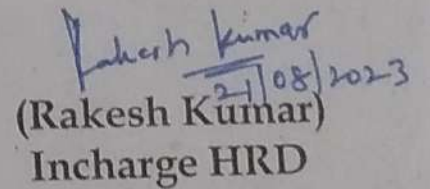 Rakesh Kumar
21/08/2023
(Rakesh Kumar)
Incharge HRD